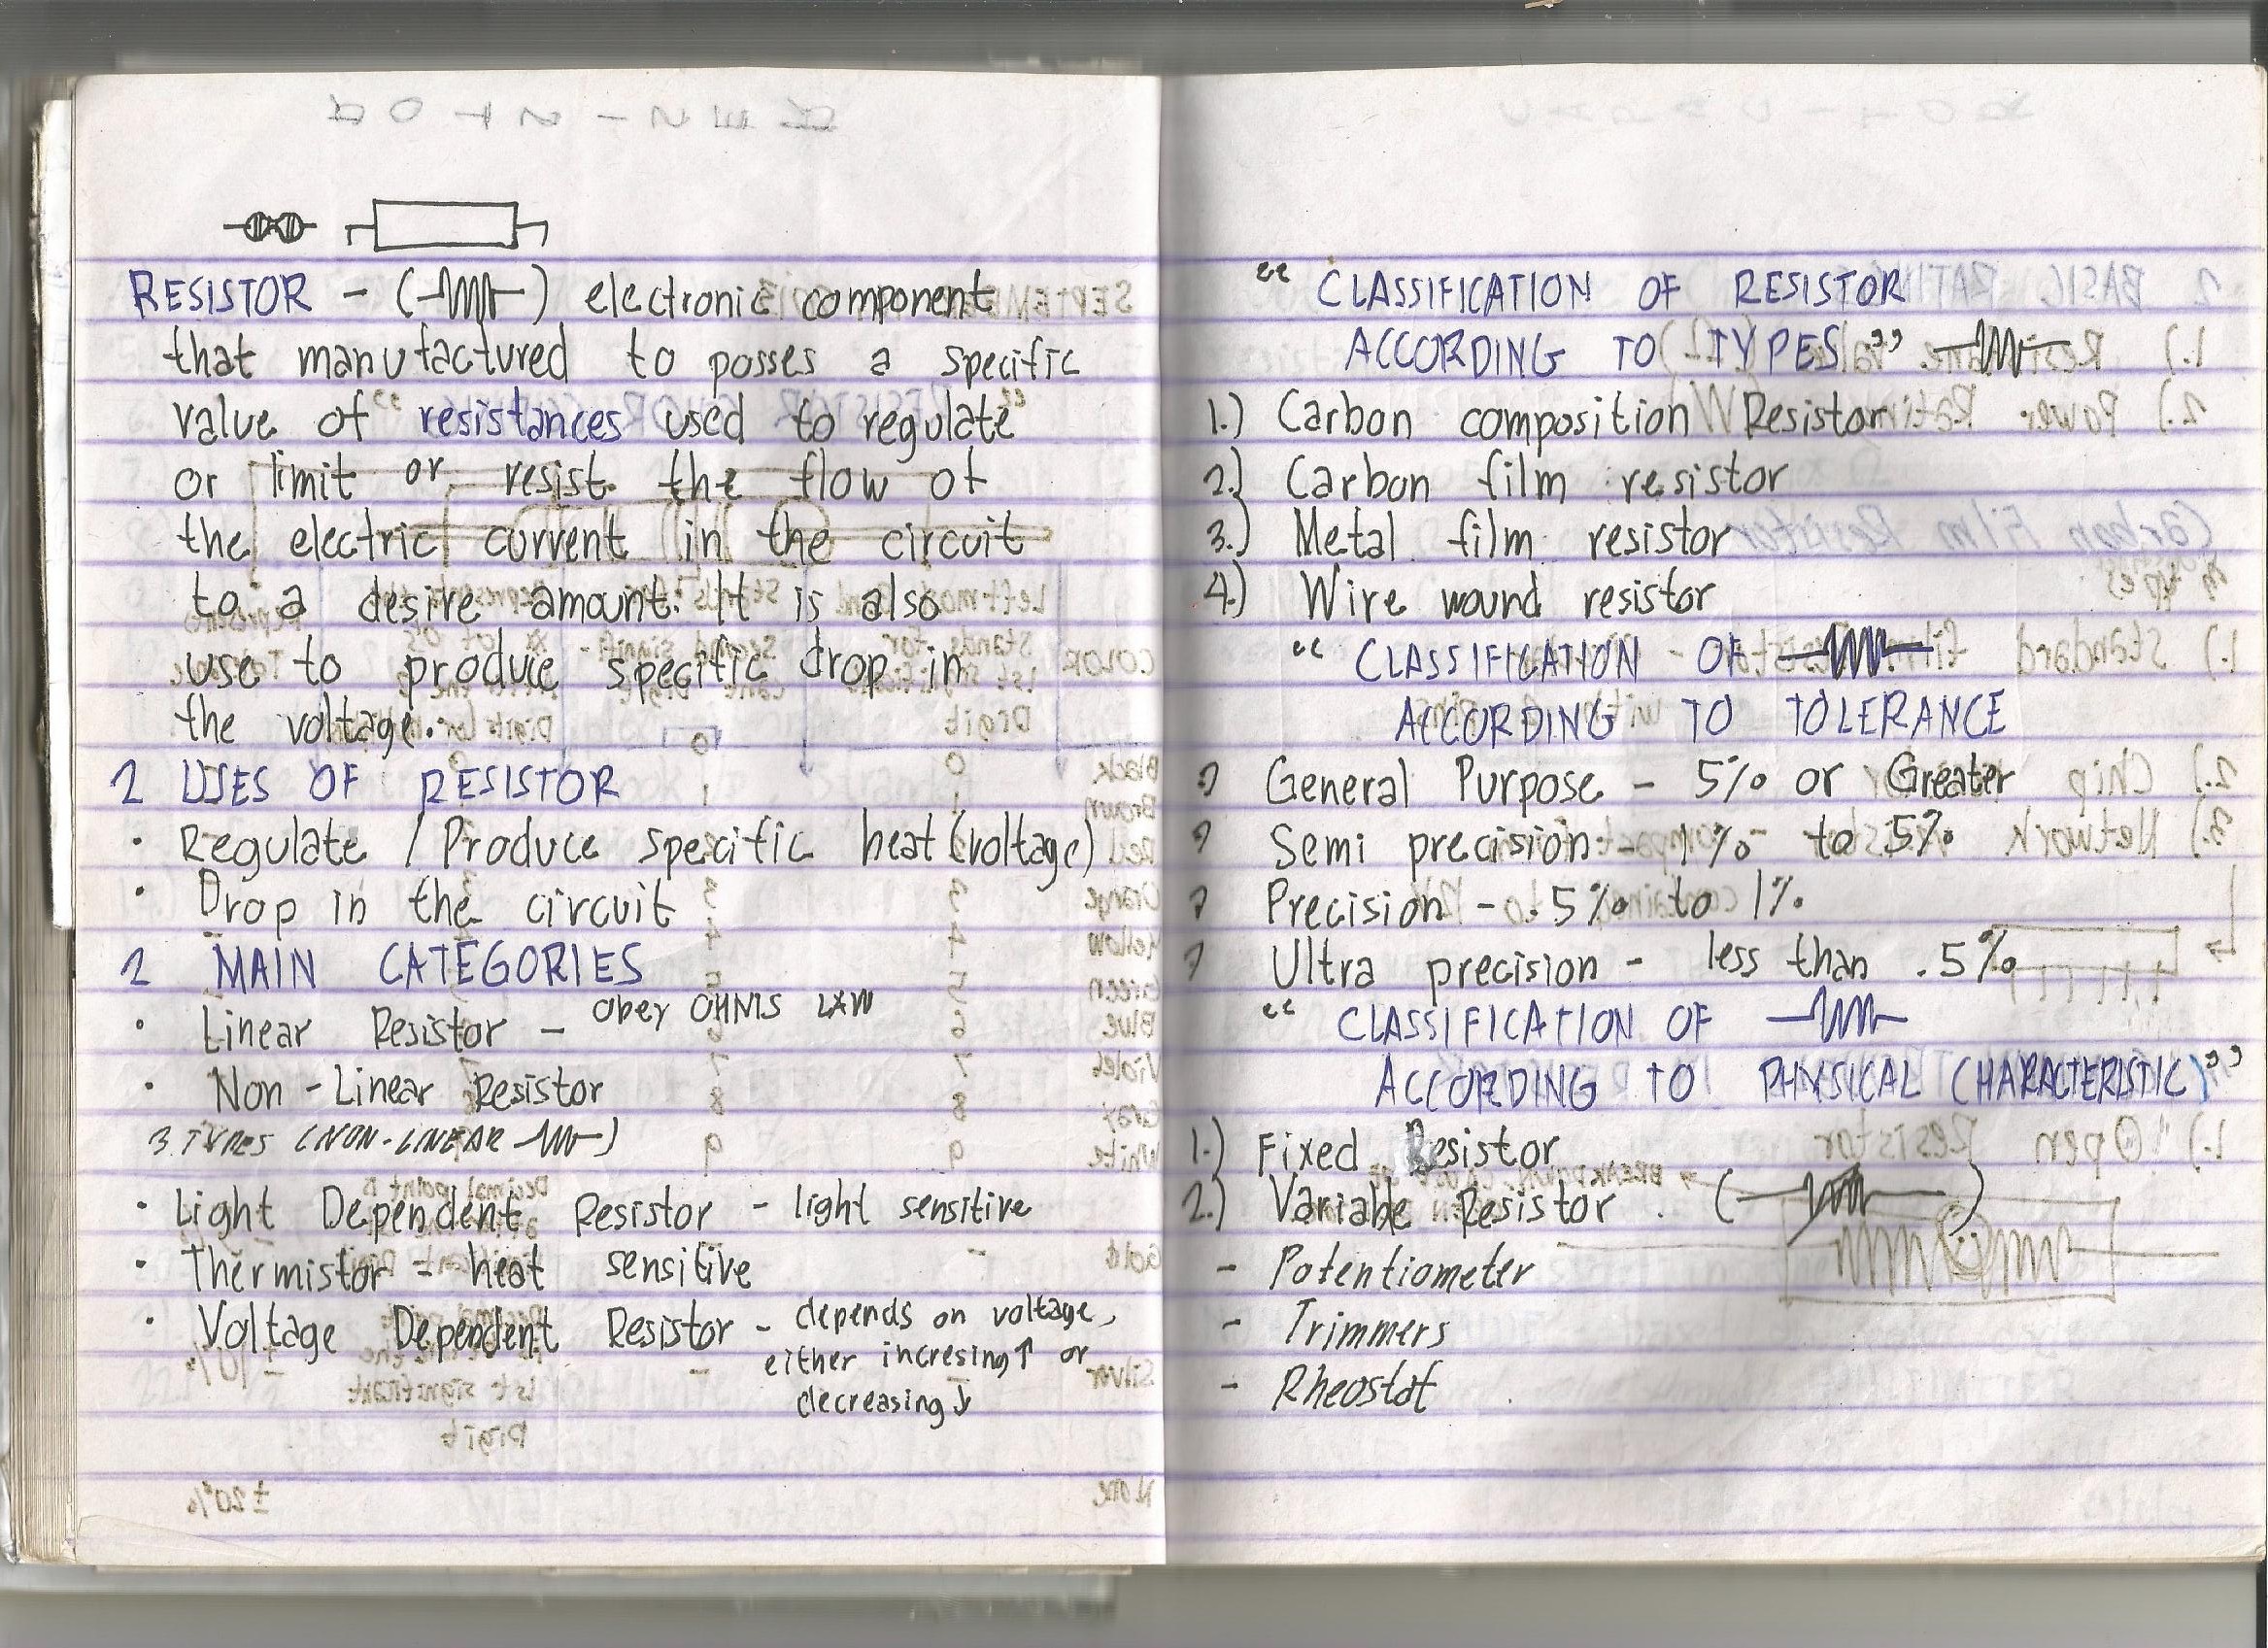 RESISTOR - ( ) electronic component
that manufactured to posses a specific
value of resistances used to regulate
or limit or resist the flow of
the electric current in the circuit
to a desire amount. It is also
use to produce specific drop in
the voltage.
2 USES OF RESISTOR
• Regulate / Produce specific heat (voltage)
• Drop in the circuit
2 MAIN CATEGORIES
• Linear Resistor - obey OHMS LAW
• Non-Linear Resistor
3 TYPES (NON-LINEAR )
• Light Dependent Resistor - light sensitive
• Thermistor - heat sensitive
• Voltage Dependent Resistor - depends on voltage,
either incresing↑ or
decreasing↓
“ CLASSIFICATION OF RESISTOR
ACCORDING TO TYPES ”
1.) Carbon composition Resistor
2.) Carbon film resistor
3.) Metal film resistor
4.) Wire wound resistor
“ CLASSIFICATION OF
ACCORDING TO TOLERANCE
General Purpose - 5% or Greater
Semi precision - 1% to 5%
Precision - .5% to 1%
Ultra precision - less than .5%
“ CLASSIFICATION OF
ACCORDING TO PHYSICAL CHARACTERISTIC ”
1.) Fixed Resistor
2.) Variable Resistor ( )
- Potentiometer
- Trimmers
- Rheostat